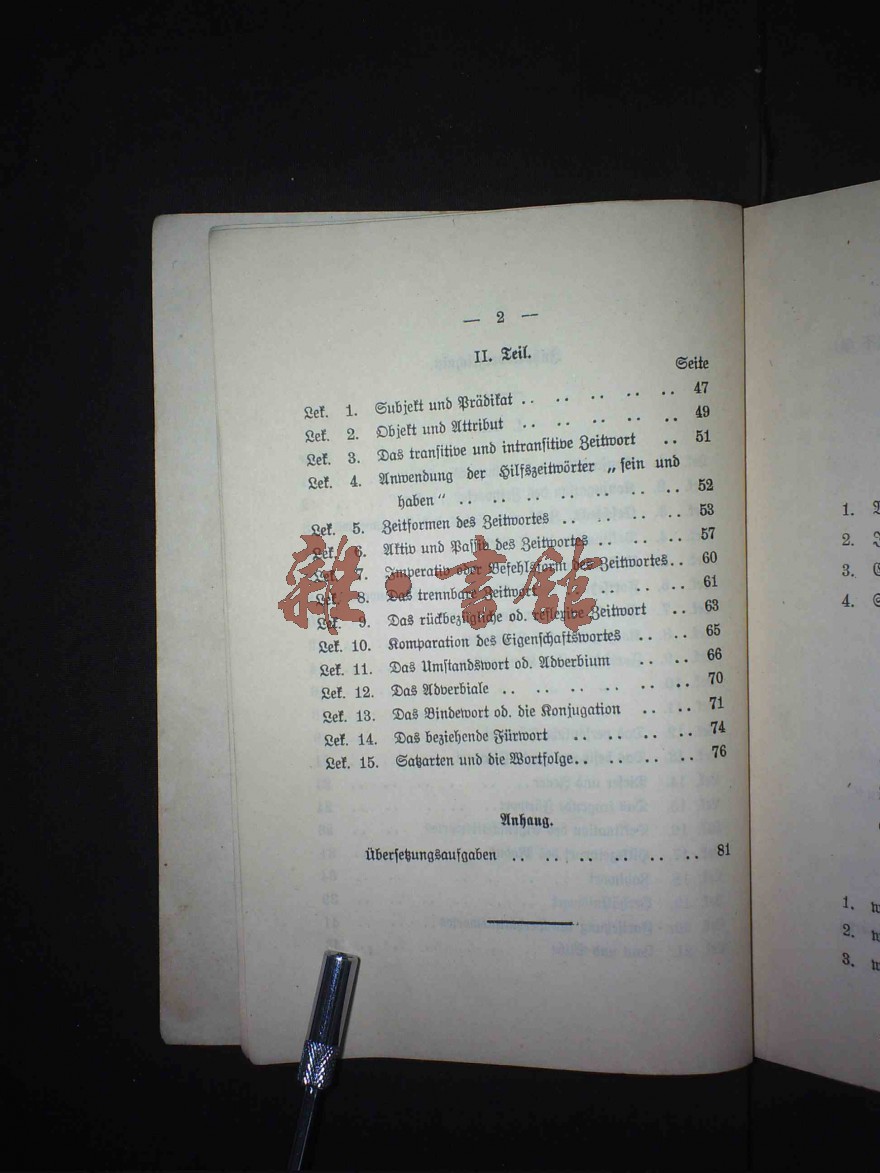 — 2 —
II. Teil.
Seite
Lek. 1. Subjekt und Prädikat .. .. .. .. .. 47
Lek. 2. Objekt und Attribut .. .. .. .. .. 49
Lek. 3. Das transitive und intransitive Zeitwort .. 51
Lek. 4. Anwendung der Hilfszeitwörter „sein und
haben“ .. .. .. .. .. .. .. 52
Lek. 5. Zeitformen des Zeitwortes .. .. .. .. 53
Lek. 6. Aktiv und Passiv des Zeitwortes .. .. .. 57
Lek. 7. Imperativ oder Befehlsform des Zeitwortes.. 60
Lek. 8. Das trennbare Zeitwort .. .. .. .. 61
Lek. 9. Das rückbezügliche od. reflexive Zeitwort .. 63
Lek. 10. Komparation des Eigenschaftswortes .. .. 65
Lek. 11. Das Umstandswort od. Adverbium .. .. 66
Lek. 12. Das Adverbiale .. .. .. .. .. .. 70
Lek. 13. Das Bindewort od. die Konjugation .. .. 71
Lek. 14. Das beziehende Fürwort .. .. .. .. 74
Lek. 15. Satzarten und die Wortfolge.. .. .. .. 76
Anhang.
Übersetzungsaufgaben .. .. .. .. .. .. 81
雜·書館
1.
2.
3.
4.
1.
2.
3.